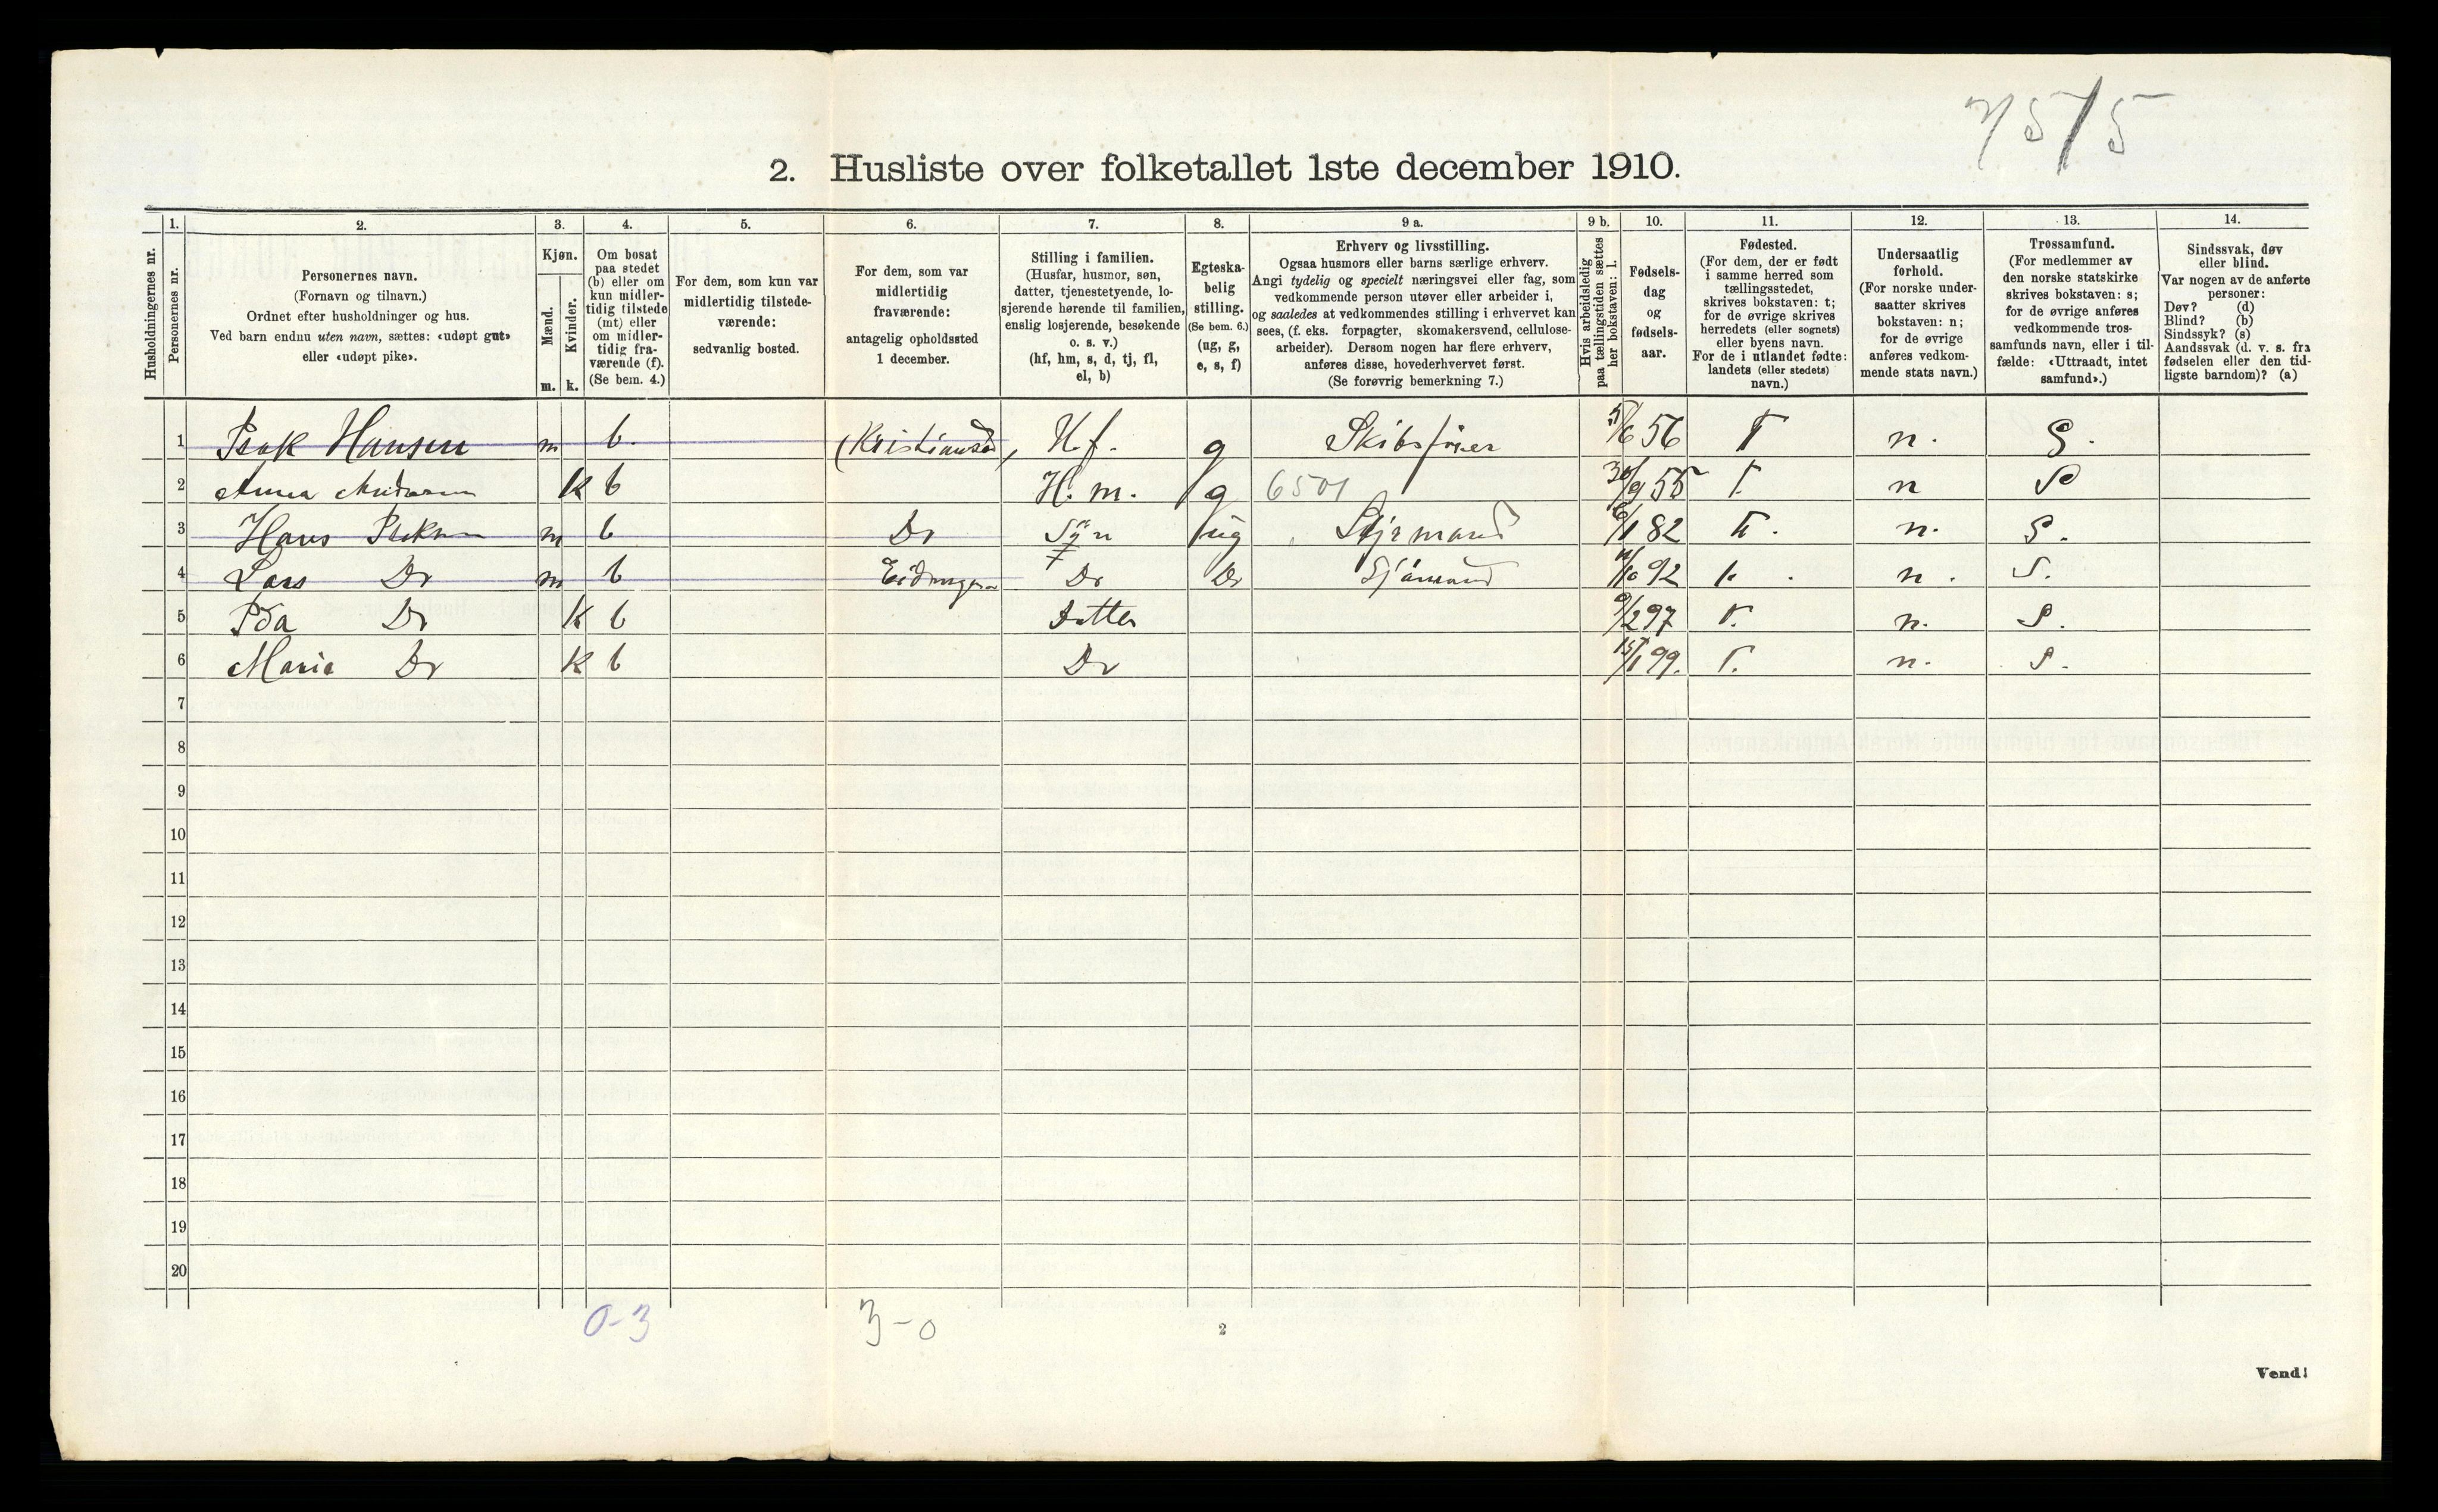 7/5/5
2. Husliste over folketallet 1ste december 1910.
Husholdningernes nr.
1.
Personernes nr.
2.
Personernes navn.
(Fornavn og tilnavn.)
Ordnet efter husholdninger og hus.
Ved barn endnu uten navn, sættes: «udøpt gut»
eller «udøpt pike».
3.
Kjøn.
Mænd.
Kvinder.
m. k.
4.
Om bosat
paa stedet
(b) eller om
kun midler-
tidig tilstede
(mt) eller
om midler-
tidig fra-
værende (f).
(Se bem. 4.)
5.
For dem, som kun var
midlertidig tilstede-
værende:
sedvanlig bosted.
6.
For dem, som var
midlertidig
fraværende:
antagelig opholdssted
1 december.
7.
Stilling i familien.
(Husfar, husmor, søn,
datter, tjenestetyende, lo-
sjerende hørende til familien,
enslig losjerende, besøkende
o. s. v.)
(hf, hm, s, d, tj, fl,
el, b)
8.
Egteska-
belig
stilling.
(Se bem. 6.)
(ug, g,
e, s, f)
9 a.
Erhverv og livsstilling.
Ogsaa husmors eller barns særlige erhverv.
Angi tydelig og specielt næringsvei eller fag, som
vedkommende person utøver eller arbeider i,
og saaledes at vedkommendes stilling i erhvervet kan
sees, (f. eks. forpagter, skomakersvend, cellulose-
arbeider). Dersom nogen har flere erhverv,
anføres disse, hovederhvervet først.
(Se forøvrig bemerkning 7.)
9 b.
Hvis arbeidsledig
paa tællingstiden sættes
her bokstaven: l.
10.
Fødsels-
dag
og
fødsels-
aar.
11.
Fødested.
(For dem, der er født
i samme herred som
tællingsstedet,
skrives bokstaven: t;
for de øvrige skrives
herredets (eller sognets)
eller byens navn.
For de i utlandet fødte:
landets (eller stedets)
navn.)
12.
Undersaatlig
forhold.
(For norske under-
saatter skrives
bokstaven: n;
for de øvrige
anføres vedkom-
mende stats navn.)
13.
Trossamfund.
(For medlemmer av
den norske statskirke
skrives bokstaven: s;
for de øvrige anføres
vedkommende tros-
samfunds navn, eller i til-
fælde: «Uttraadt, intet
samfund».)
14.
Sindssvak, døv
eller blind.
Var nogen av de anførte
personer:
Døv? (d)
Blind? (b)
Sindssyk? (s)
Aandssvak (d. v. s. fra
fødselen eller den tid-
ligste barndom)? (a)
1 Isak Hansen m b. Kristiansd, H.f. g Skibsfører 5/6 56 T n. S.
2 Anna Andersen k b H.m. g 6501 30/9 55 T. n S
3 Hans Isaksen m b Do Søn ug Styrmand 6/1 82 T. n. S.
4 Lars Do m b Do Do Sjømand 11/10 92 t. n. S.
5 Ida Do k b Datter 9/2 97 T. n. S.
6 Maria Do k b Do 15/1 99. T. n. S.
7
8
9
10
11
12
13
14
15
16
17
18
19
20
0-3 3-0
2
Vend!